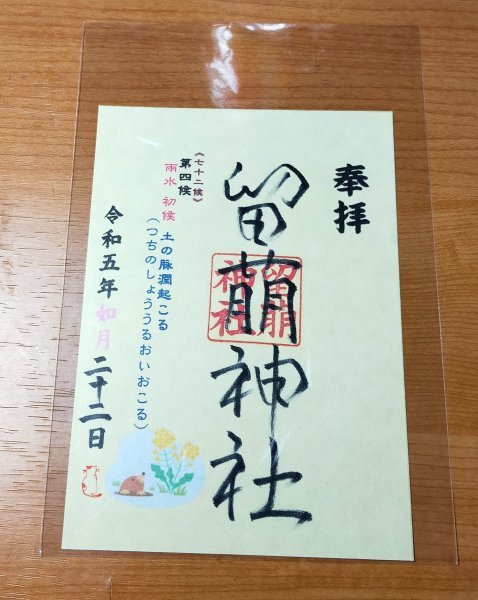 奉拝
留萠神社
留萠
神社
《七十二候》
第四候
雨水 初候 土の脉潤起こる
(つちのしょううるおいおこる)
令和五年 如月 二十二日